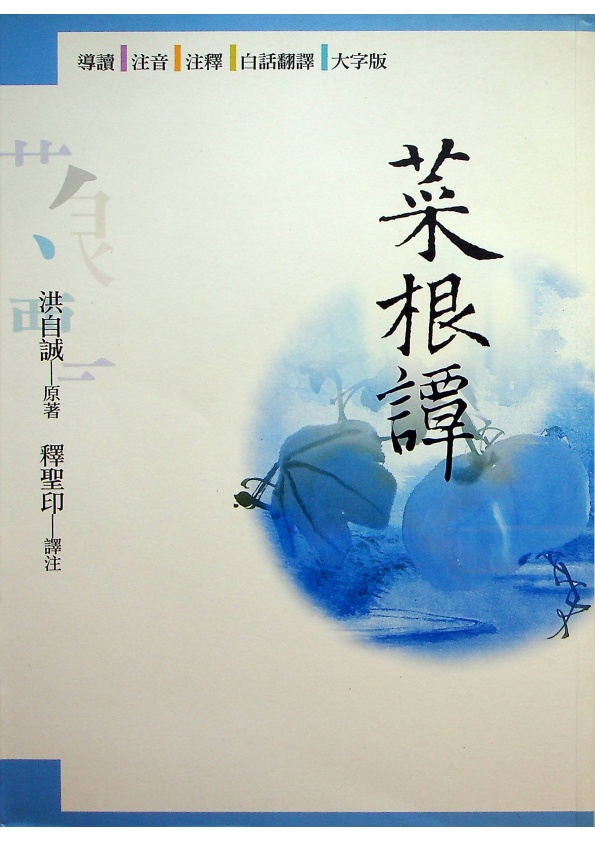 導讀 注音 注釋 白話翻譯 大字版
菜根譚
洪自誠—原著 釋聖印—譯注